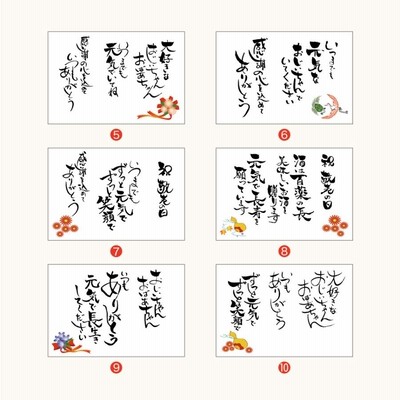 大好きな
おじいちゃん
おばあちゃん
いつまでも
元気でいてね
感謝の心を込めて
いつもありがとう
⑤
いつまでも
元気な
おじいちゃんで
いてください
感謝の心を込めて
ありがとう
⑥
祝 敬老の日
いつまでも
ずっと元気で
ずっと笑顔で
感謝を込めて
ありがとう
⑦
祝 敬老の日
酒は百薬の長
美味しいお酒を
贈ります
元気で長寿を
願っています
⑧
おじいちゃん
おばあちゃん
いつも
ありがとう
いつまでも
元気で長生き
してください
⑨
大好きな
おじいちゃん
おばあちゃん
いつも
ありがとう
ずっと元気で
ずっと笑顔で
⑩